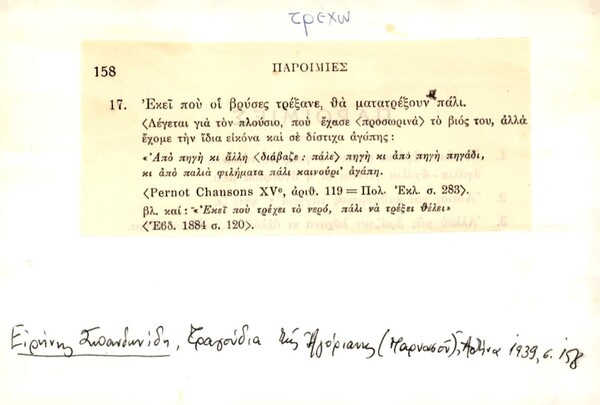 τρέχω
158 ΠΑΡΟΙΜΙΕΣ
17. Ἐκεῖ ποὺ οἱ βρύσες τρέξανε, θὰ ματατρέξουν πάλι.
⟨Λέγεται γιὰ τὸν πλούσιο, ποὺ ἔχασε ⟨προσωρινὰ⟩ τὸ βιός του, ἀλλὰ
ἔχομε τὴν ἴδια εἰκόνα καὶ σὲ δίστιχα ἀγάπης:
«Ἀπὸ πηγὴ κι ἄλλη ⟨διάβαζε: πάλε⟩ πηγὴ κι ἀπὸ πηγὴ πηγάδι,
κι ἀπὸ παλιὰ φιλήματα πάλι καινούρι' ἀγάπη.
⟨Pernot Chansons XVᵉ, ἀριθ. 119 = Πολ. Ἐκλ. σ. 283⟩.
βλ. καί: «Ἐκεῖ ποὺ τρέχει τὸ νερό, πάλι νὰ τρέξει θέλει»
⟨Ἑβδ. 1884 σ. 120⟩.
Εἰρήνης Σπανδωνίδη, Τραγούδια τῆς Ἀγόριανης (Παρνασσοῦ), Ἀθήνα 1939, σ. 158